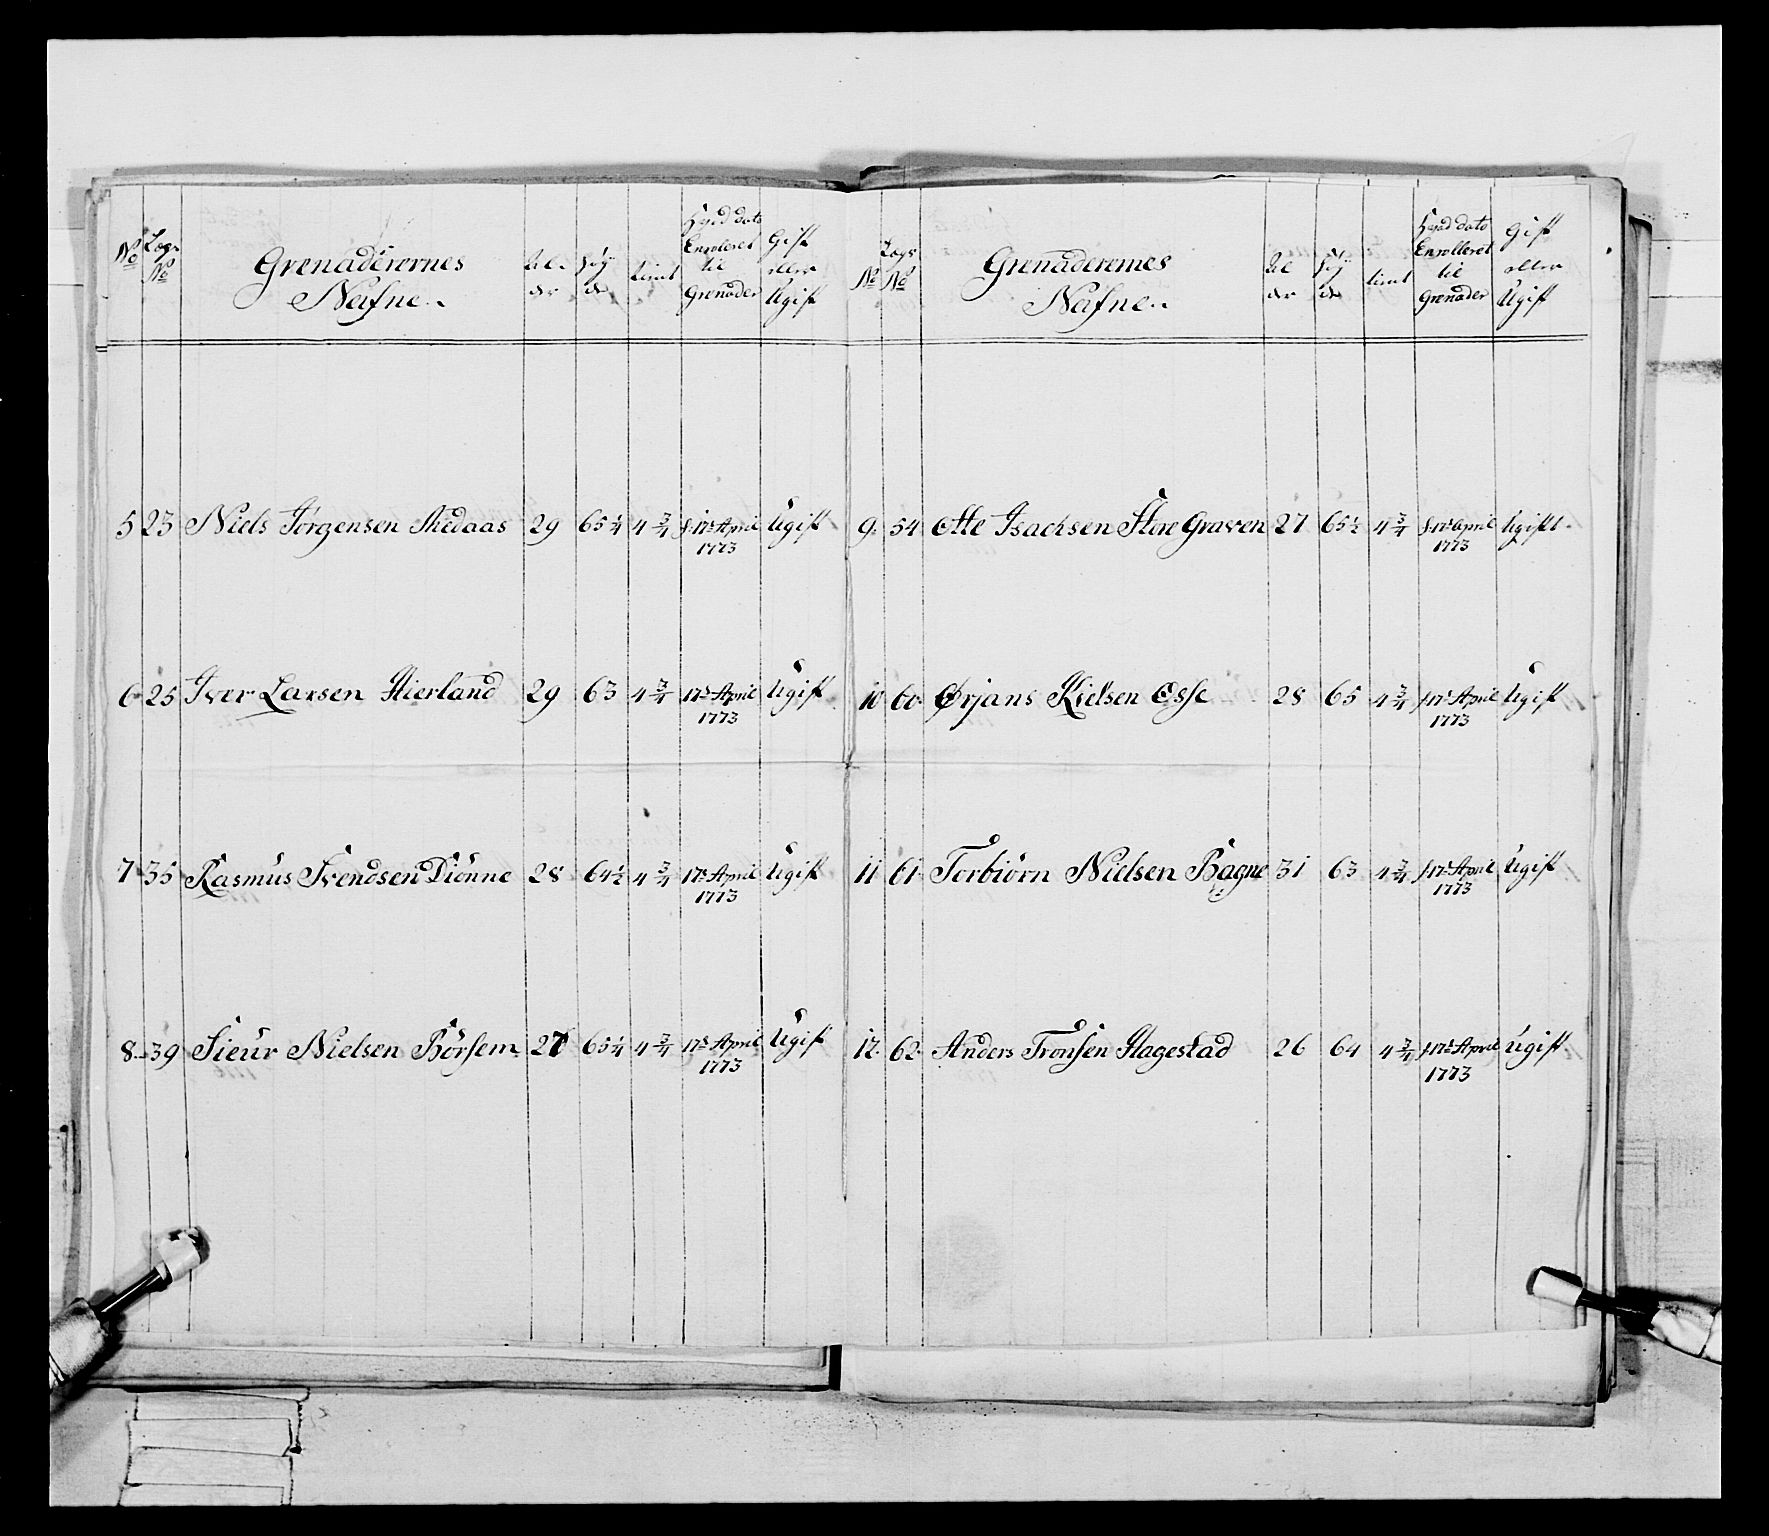 No
Lægs No
Grenaderernes
Nafne.
Al-
der
Høy
de
Hvad dato
Enrolleret
til
Grenader
Gift
eller
Ugift
5 23 Niels Jørgensen Medaas 29 65 1/4 4 3/4 d. 17de April Ugift
1773
6 25 Iver Larsen Hierland 29 63 4 3/4 17de April Ugift
1773
7 35 Rasmus Svendsen Diønne 28 64 1/2 4 3/4 17de April Ugift
1773
8 39 Sieur Nielsen Børsem 27 65 1/4 4 3/4 17de April Ugift
1773
No
Lægs No
Grenaderernes
Nafne.
Al
der
Høy
de
Hvad dato
Enrolleret
til
Grenader
Gift
eller
Ugift
9. 54 Otte Isachsen Store Graven 27 65 1/2 4 3/4 d 17de April Ugift.
1773
10 60 Ørjans Kielsen Esse 28 65 4 3/4 d 17de April Ugift
1773
11 61 Torbiørn Nielsen Bagne 31 63 4 3/4 d 17de April Ugift
1773
12. 62 Anders Tronsen Hagestad 26 64 4 3/4 d 17de April Ugift
1773